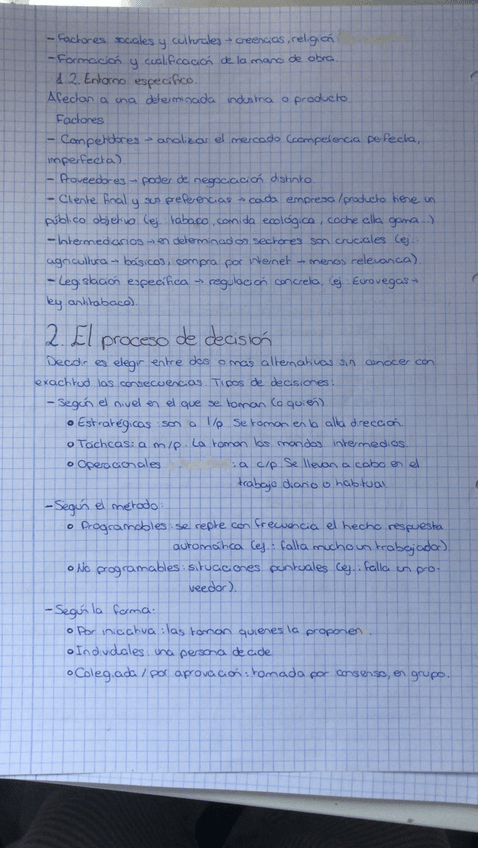 - Factores sociales y culturales → creencias, religión
- Formación y cualificación de la mano de obra.
1.2. Entorno específico.
Afectan a una determinada industria o producto
Factores
- Competidores → analizar el mercado (competencia perfecta,
imperfecta)
- Proveedores → poder de negociación distinto
- Cliente final y sus preferencias → cada empresa/producto tiene un
público objetivo (ej: tabaco, comida ecológica, coche alta gama...)
- Intermediarios → en determinados sectores son cruciales (ej:
agricultura → básicos, compra por internet → menos relevancia)
- Legislación específica → regulación concreta (ej: Eurovegas →
ley antitabaco).
2. El proceso de decisión
Decidir es elegir entre dos o más alternativas sin conocer con
exactitud las consecuencias. Tipos de decisiones:
- Según el nivel en el que se toman (o quién)
o Estratégicas: son a l/p. Se toman en la alta dirección
o Tácticas: a m/p. La toman los mandos intermedios
o Operacionales : a c/p. Se llevan a cabo en el
trabajo diario o habitual
- Según el método:
o Programables: se repite con frecuencia el hecho respuesta
automática (ej.: falla mucho un trabajador)
o No programables: situaciones puntuales (ej.: falla un pro-
veedor).
- Según la forma:
o Por iniciativa: las toman quienes la proponen.
o Individuales: una persona decide
o Colegiada / por aprovación: tomada por consenso, en grupo.